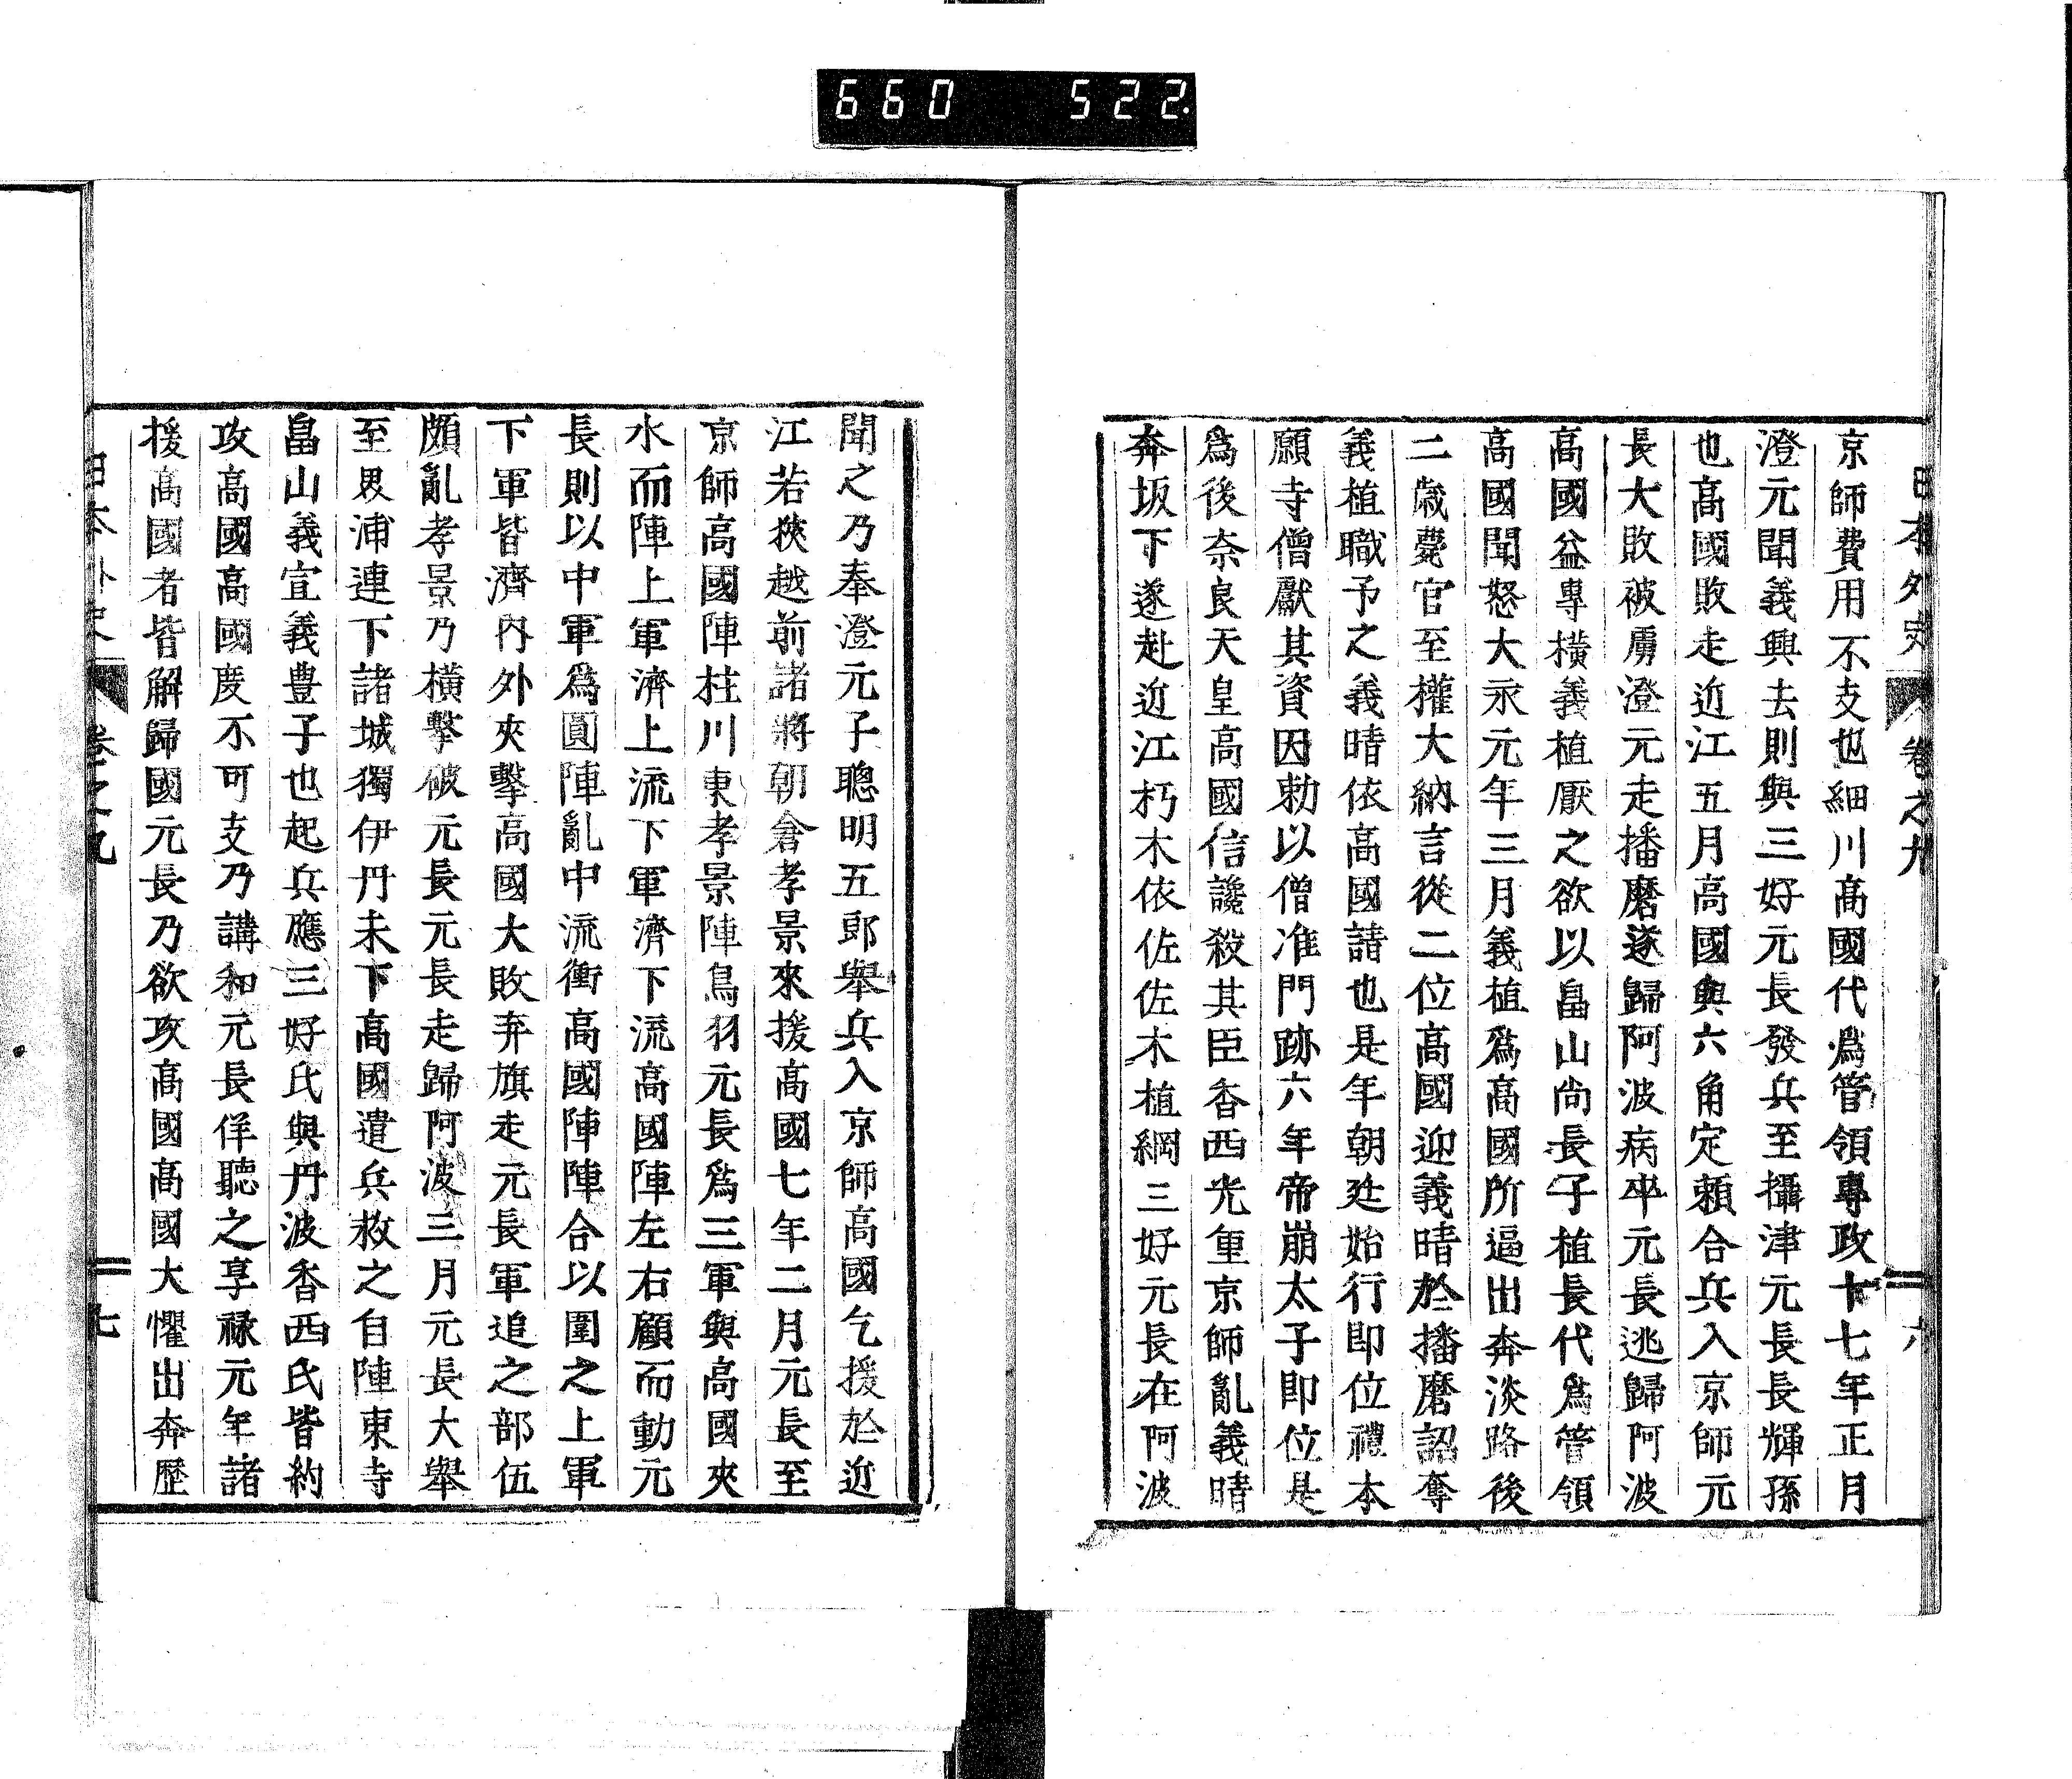 660 522.
日本外史 卷之九 六
京師費用不支也細川高國代爲管領專政十七年正月
澄元聞義興去則與三好元長發兵至攝津元長長輝孫
也高國敗走近江五月高國與六角定賴合兵入京師元
長大敗被虜澄元走播磨遂歸阿波病卒元長逃歸阿波
高國益專橫義植厭之欲以畠山尚長子植長代爲管領
高國聞怒大永元年三月義植爲高國所逼出奔淡路後
二歲薨官至權大納言從二位高國迎義晴於播磨詔奪
義植職予之義晴依高國請也是年朝廷始行即位禮本
願寺僧獻其資因勅以僧准門跡六年帝崩太子即位是
爲後奈良天皇高國信讒殺其臣香西光重京師亂義晴
奔坂下遂赴近江朽木依佐佐木植綱三好元長在阿波
聞之乃奉澄元子聰明五郎舉兵入京師高國乞援於近
江若狹越前諸將朝倉孝景來援高國七年二月元長至
京師高國陣桂川東孝景陣鳥羽元長爲三軍與高國夾
水而陣上軍濟上流下軍濟下流高國陣左右顧而動元
長則以中軍爲圓陣亂中流衝高國陣陣合以圍之上軍
下軍皆濟內外夾擊高國大敗弃旗走元長軍追之部伍
頗亂孝景乃橫擊破元長元長走歸阿波三月元長大舉
至界浦連下諸城獨伊丹未下高國遣兵救之自陣東寺
畠山義宣義豊子也起兵應三好氏與丹波香西氏皆約
攻高國高國度不可支乃講和元長佯聽之享祿元年諸
援高國者皆解歸國元長乃欲攻高國高國大懼出奔歷
日本外史 卷之九 七